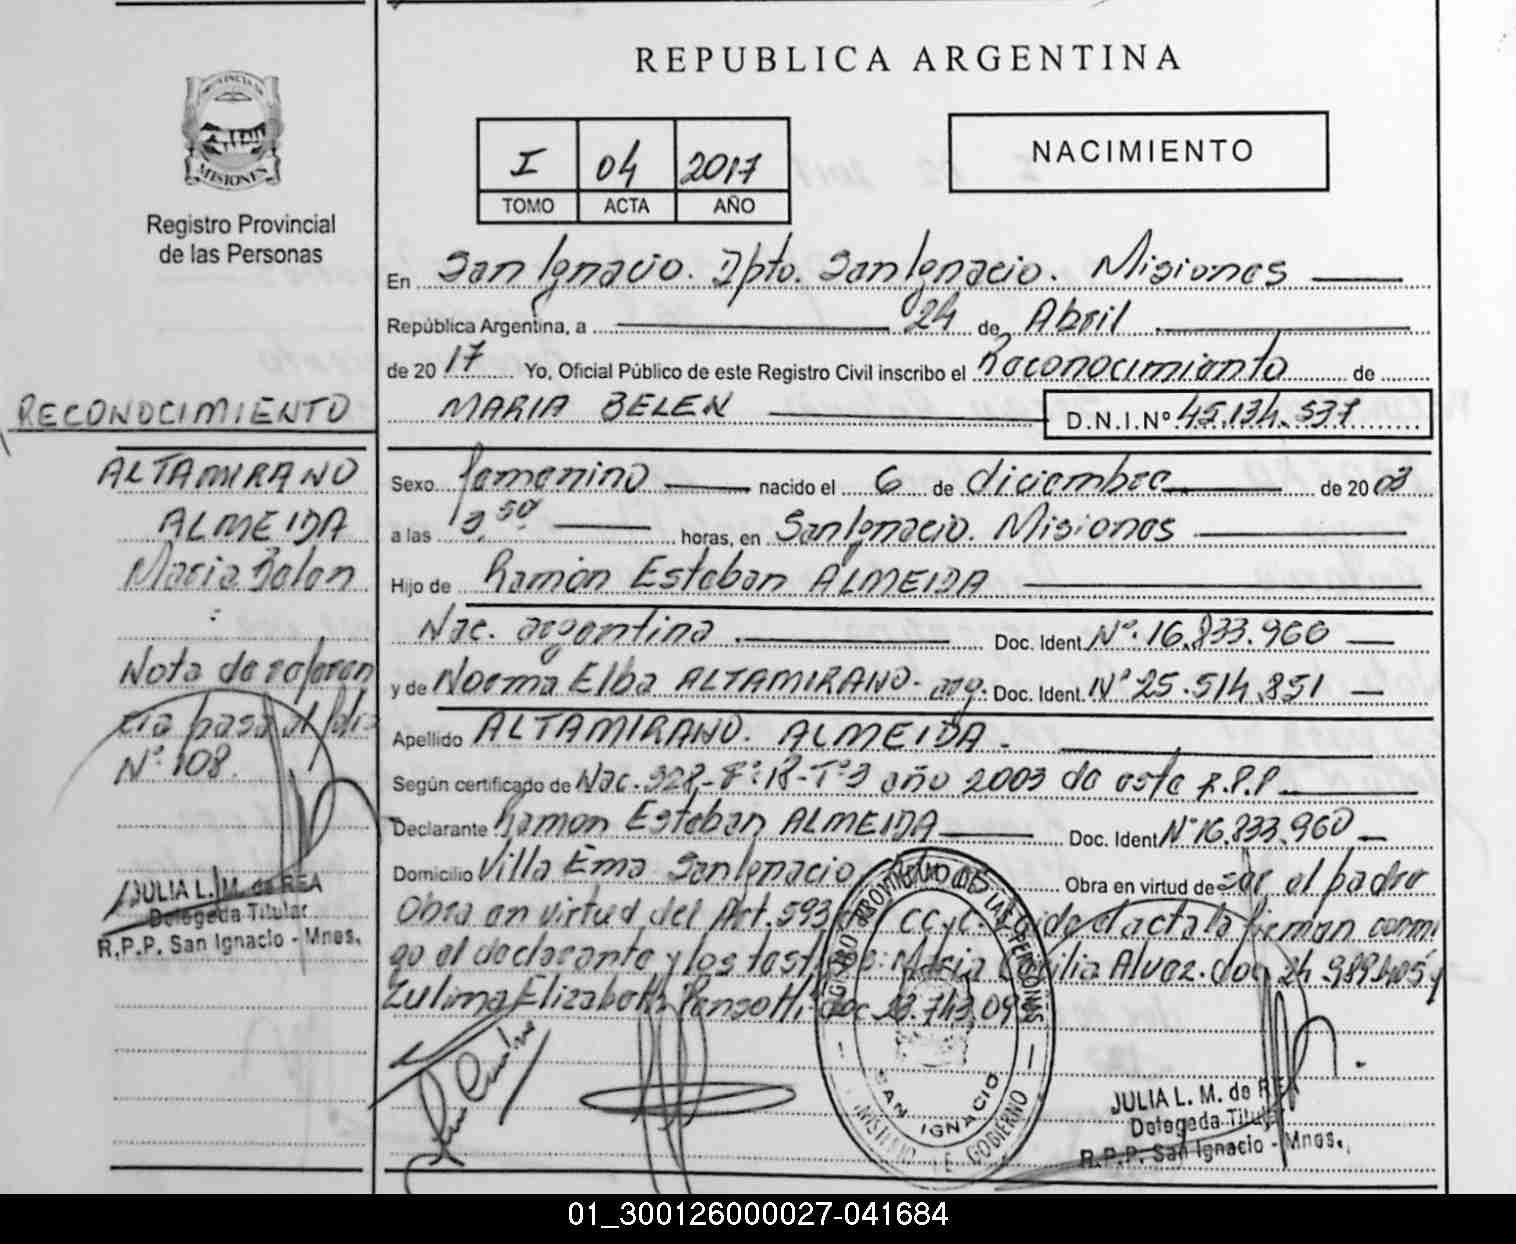 REPUBLICA ARGENTINA
PROVINCIA DE
MISIONES
Registro Provincial
de las Personas
I 04 2017
TOMO ACTA AÑO
NACIMIENTO
En San Ignacio. Dpto. San Ignacio. Misiones
República Argentina, a 24 de Abril
de 2017 Yo, Oficial Público de este Registro Civil inscribo el Reconocimiento de
MARIA BELEN D.N.I.Nº 45.134.537
Sexo femenino nacido el 6 de diciembre de 2003
a las 3,50 horas, en San Ignacio. Misiones
Hijo de Ramón Esteban ALMEIDA
Nac. argentina. Doc. Ident. Nº 16.833.960
y de Norma Elba ALTAMIRANO. arg. Doc. Ident. Nº 25.514.851
Apellido ALTAMIRANO. ALMEIDA.
Según certificado de Nac. 328-Fº:18-Tº3 año 2003 de este R.P.P
Declarante Ramón Esteban ALMEIDA Doc. Ident. Nº 16.833.960
Domicilio Villa Ema San Ignacio Obra en virtud de ser el padre
Obra en virtud del Art. 593 CCyC. el acta la firman conmi
go el declarante y los testigos: Maria Alvez. doc 24.989.405 y
Zulima Elizabeth Pensotti. doc 23.743.09
RECONOCIMIENTO
ALTAMIRANO
ALMEIDA
Maria Belen
Nota de referen
cia pasa al folio
Nº 108.
JULIA L. M. de REA
Delegada Titular
R.P.P. San Ignacio - Mnes.
REGISTRO PROVINCIAL DE LAS PERSONAS
SAN IGNACIO
MINISTERIO DE GOBIERNO
JULIA L. M. de REA
Delegada Titular
R.P.P. San Ignacio - Mnes.
01_300126000027-041684